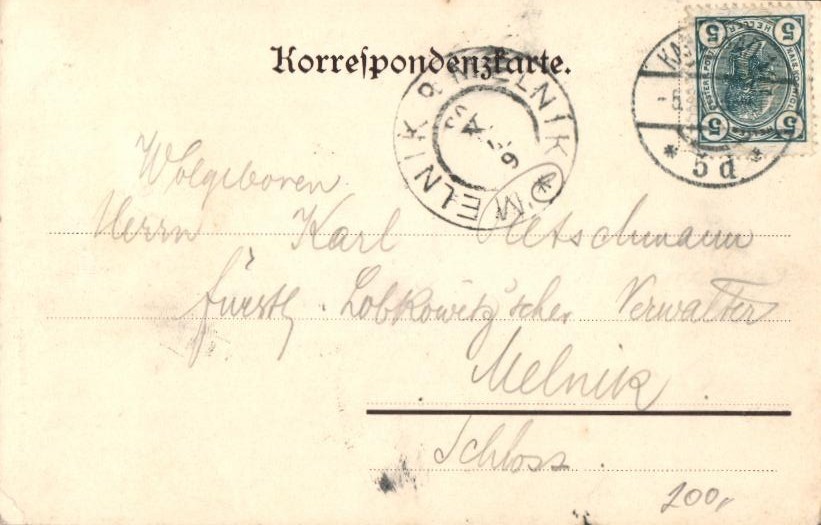 Korrespondenzkarte.
MĚLNÍK * MELNIK
5 d
5 HELLER 5
5 5
Wolgeboren
Herrn Karl
fürstl. Lobkowitz'scher Verwalter
Melnik
Schloss.
200,